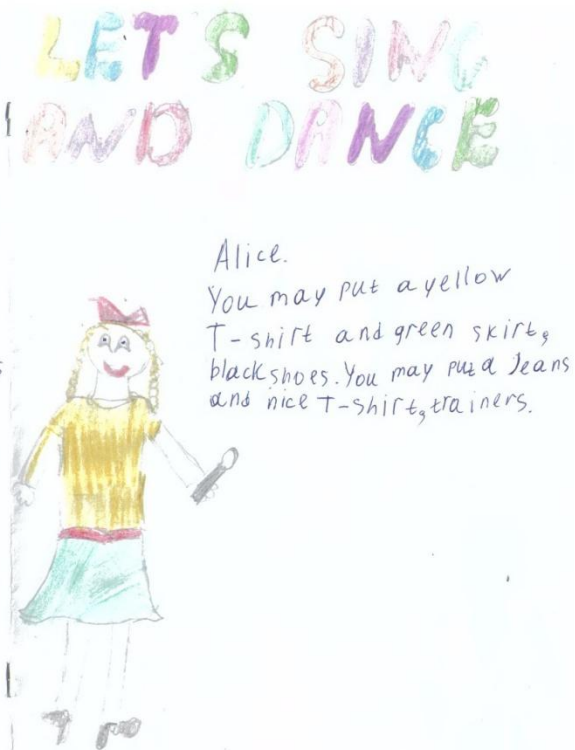 LET'S SING
AND DANCE
Alice.
You may put a yellow
T-shirt and green skirt,
black shoes. You may put a Jeans
and nice T-shirt, trainers.